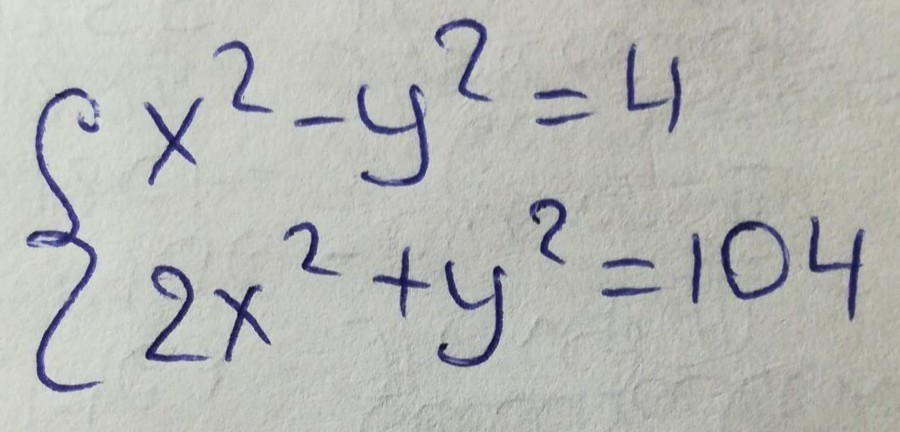 x² - y² = 4
2x² + y² = 104